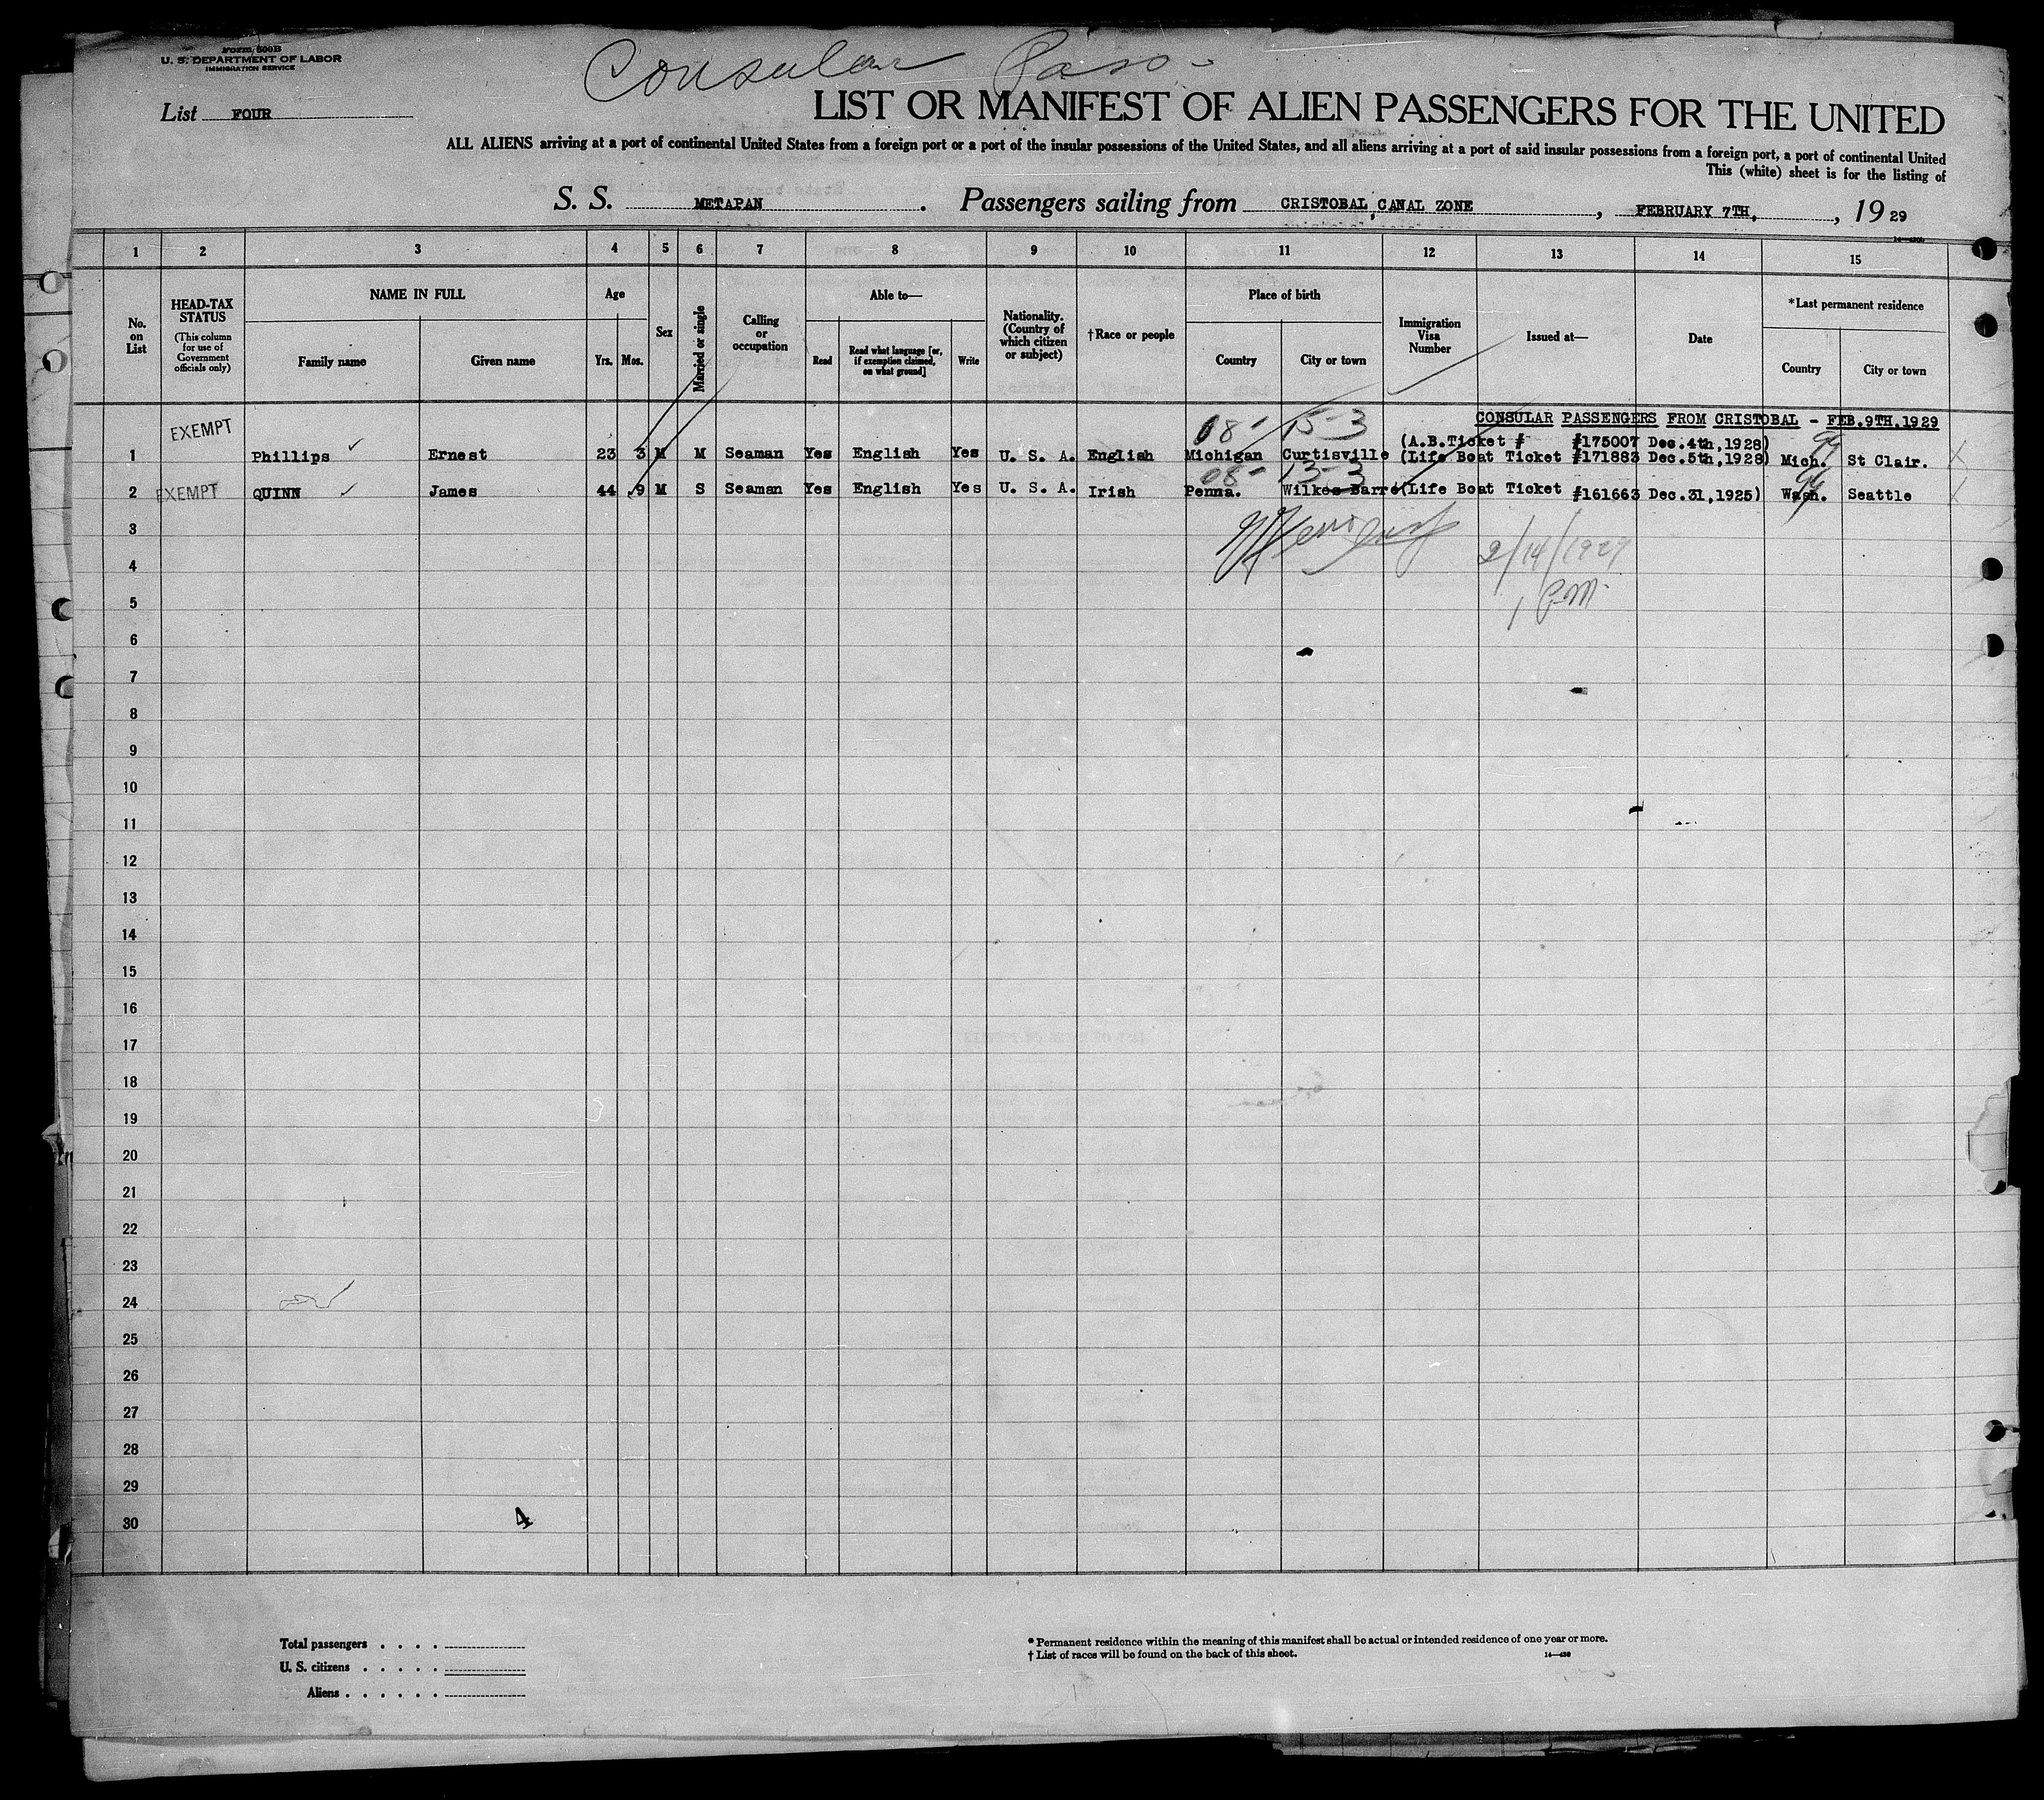 Form 500B
U. S. DEPARTMENT OF LABOR
IMMIGRATION SERVICE
Consular Pass-
List FOUR
LIST OR MANIFEST OF ALIEN PASSENGERS FOR THE UNITED
ALL ALIENS arriving at a port of continental United States from a foreign port or a port of the insular possessions of the United States, and all aliens arriving at a port of said insular possessions from a foreign port, a port of continental United
This (white) sheet is for the listing of
S. S. METAPAN. Passengers sailing from CRISTOBAL, CANAL ZONE, FEBRUARY 7TH, , 19 29
1 2 3 4 5 6 7 8 9 10 11 12 13 14 15
No. on List
HEAD-TAX STATUS
(This column for use of Government officials only)
NAME IN FULL
Family name
Given name
Age
Yrs. Mos.
Sex
Married or single
Calling or occupation
Able to—
Read
Read what language [or, if exemption claimed, on what ground]
Write
Nationality. (Country of which citizen or subject)
†Race or people
Place of birth
Country
City or town
Immigration Visa Number
Issued at—
Date
*Last permanent residence
Country
City or town
CONSULAR PASSENGERS FROM CRISTOBAL - FEB.9TH.1929
08- 15-3
(A.B.Ticket # #175007 Dec.4th,1928)
1 EXEMPT Phillips Ernest 23 3 M M Seaman Yes English Yes U. S. A. English Michigan Curtisville (Life Boat Ticket #171883 Dec.5th,1928) Mich. St Clair.
08- 13-3
2 EXEMPT QUINN James 44 9 M S Seaman Yes English Yes U. S. A. Irish Penna. Wilkes Barre (Life Boat Ticket #161663 Dec.31,1925) Wash. Seattle
3
2/14/1929
4
1 P.M.
5
6
7
8
9
10
11
12
13
14
15
16
17
18
19
20
21
22
23
24
25
26
27
28
29
30
4
Total passengers . . . .
U. S. citizens . . . . .
Aliens . . . . . .
* Permanent residence within the meaning of this manifest shall be actual or intended residence of one year or more.
† List of races will be found on the back of this sheet.